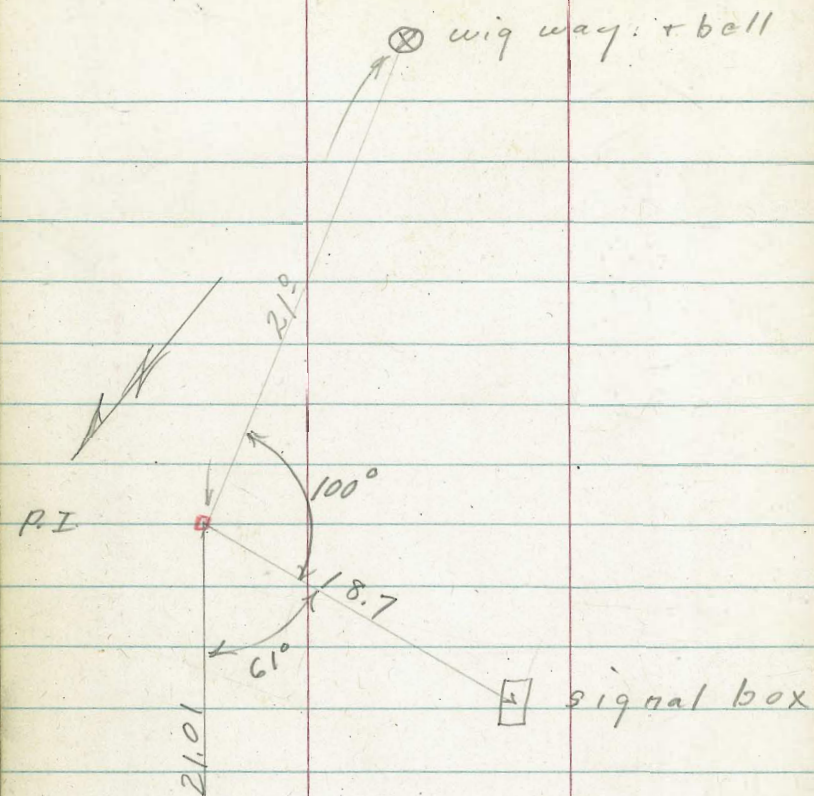 wig way. + bell
21.0
100°
P.I.
18.7
61°
signal box
21.01